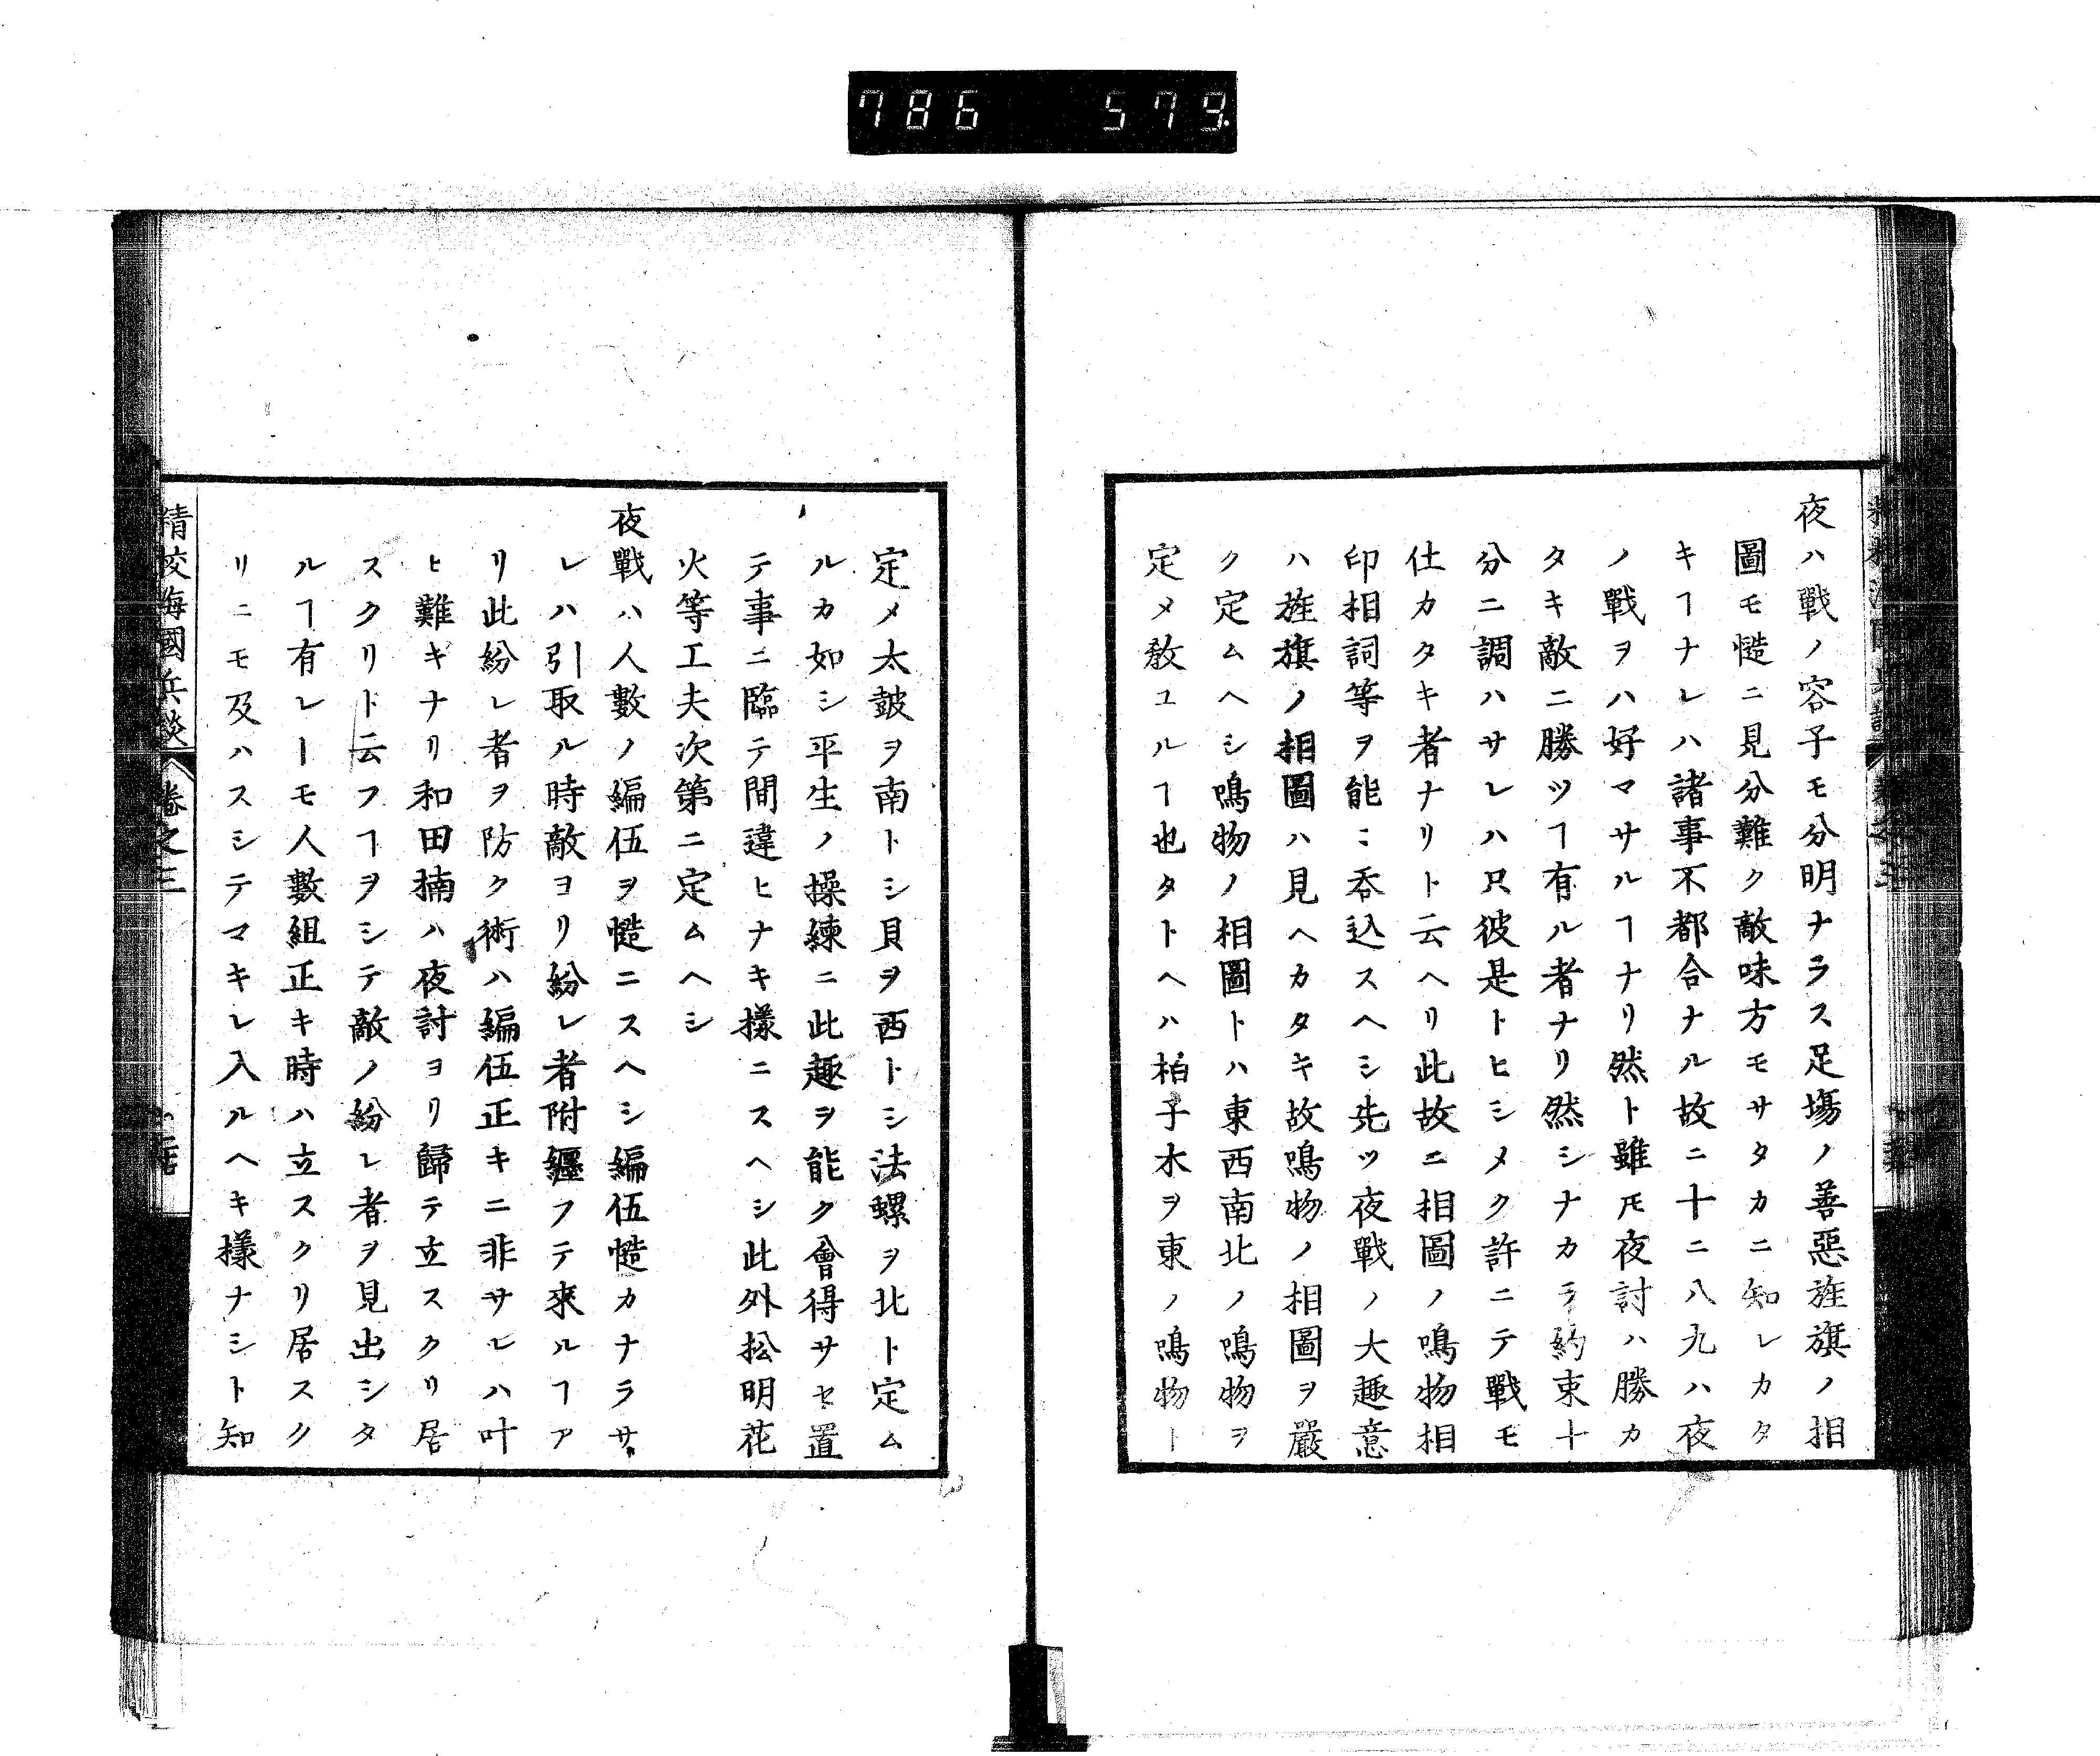 786 579
夜ハ戰ノ容子モ分明ナラス足塲ノ善惡旌旗ノ相
圖モ慥ニ見分難ク敵味方モサタカニ知レカタ
キヿナレハ諸事不都合ナル故ニ十ニ八九ハ夜
ノ戰ヲハ好マサルヿナリ然ト雖𪜈夜討ハ勝カ
タキ敵ニ勝ツヿ有ル者ナリ然シナカラ約束十
分ニ調ハサレハ只彼是トヒシメク許ニテ戰モ
仕カタキ者ナリト云ヘリ此故ニ相圖ノ鳴物相
印相詞等ヲ能〻呑込スヘシ先ツ夜戰ノ大趣意
ハ旌旗ノ相圖ハ見ヘカタキ故鳴物ノ相圖ヲ嚴
ク定ムヘシ鳴物ノ相圖トハ東西南北ノ鳴物ヲ
定メ敎ユルヿ也タトヘハ柏子木ヲ東ノ鳴物ト
定メ太皷ヲ南トシ貝ヲ西トシ法螺ヲ北ト定ム
ルカ如シ平生ノ操練ニ此趣ヲ能ク會得サセ置
テ事ニ臨テ間違ヒナキ樣ニスヘシ此外松明花
火等工夫次第ニ定ムヘシ
夜戰ハ人數ノ編伍ヲ慥ニスヘシ編伍慥カナラサ
レハ引取ル時敵ヨリ紛レ者附纒フテ來ルヿア
リ此紛レ者ヲ防ク術ハ編伍正キニ非サレハ叶
ヒ難キナリ和田楠ハ夜討ヨリ歸テ立スクリ居
スクリト云フヿヲシテ敵ノ紛レ者ヲ見出シタ
ルヿ有レーモ人數組正キ時ハ立スクリ居スク
リニモ及ハスシテマキレ入ルヘキ樣ナシト知
精校海國兵談 卷之三